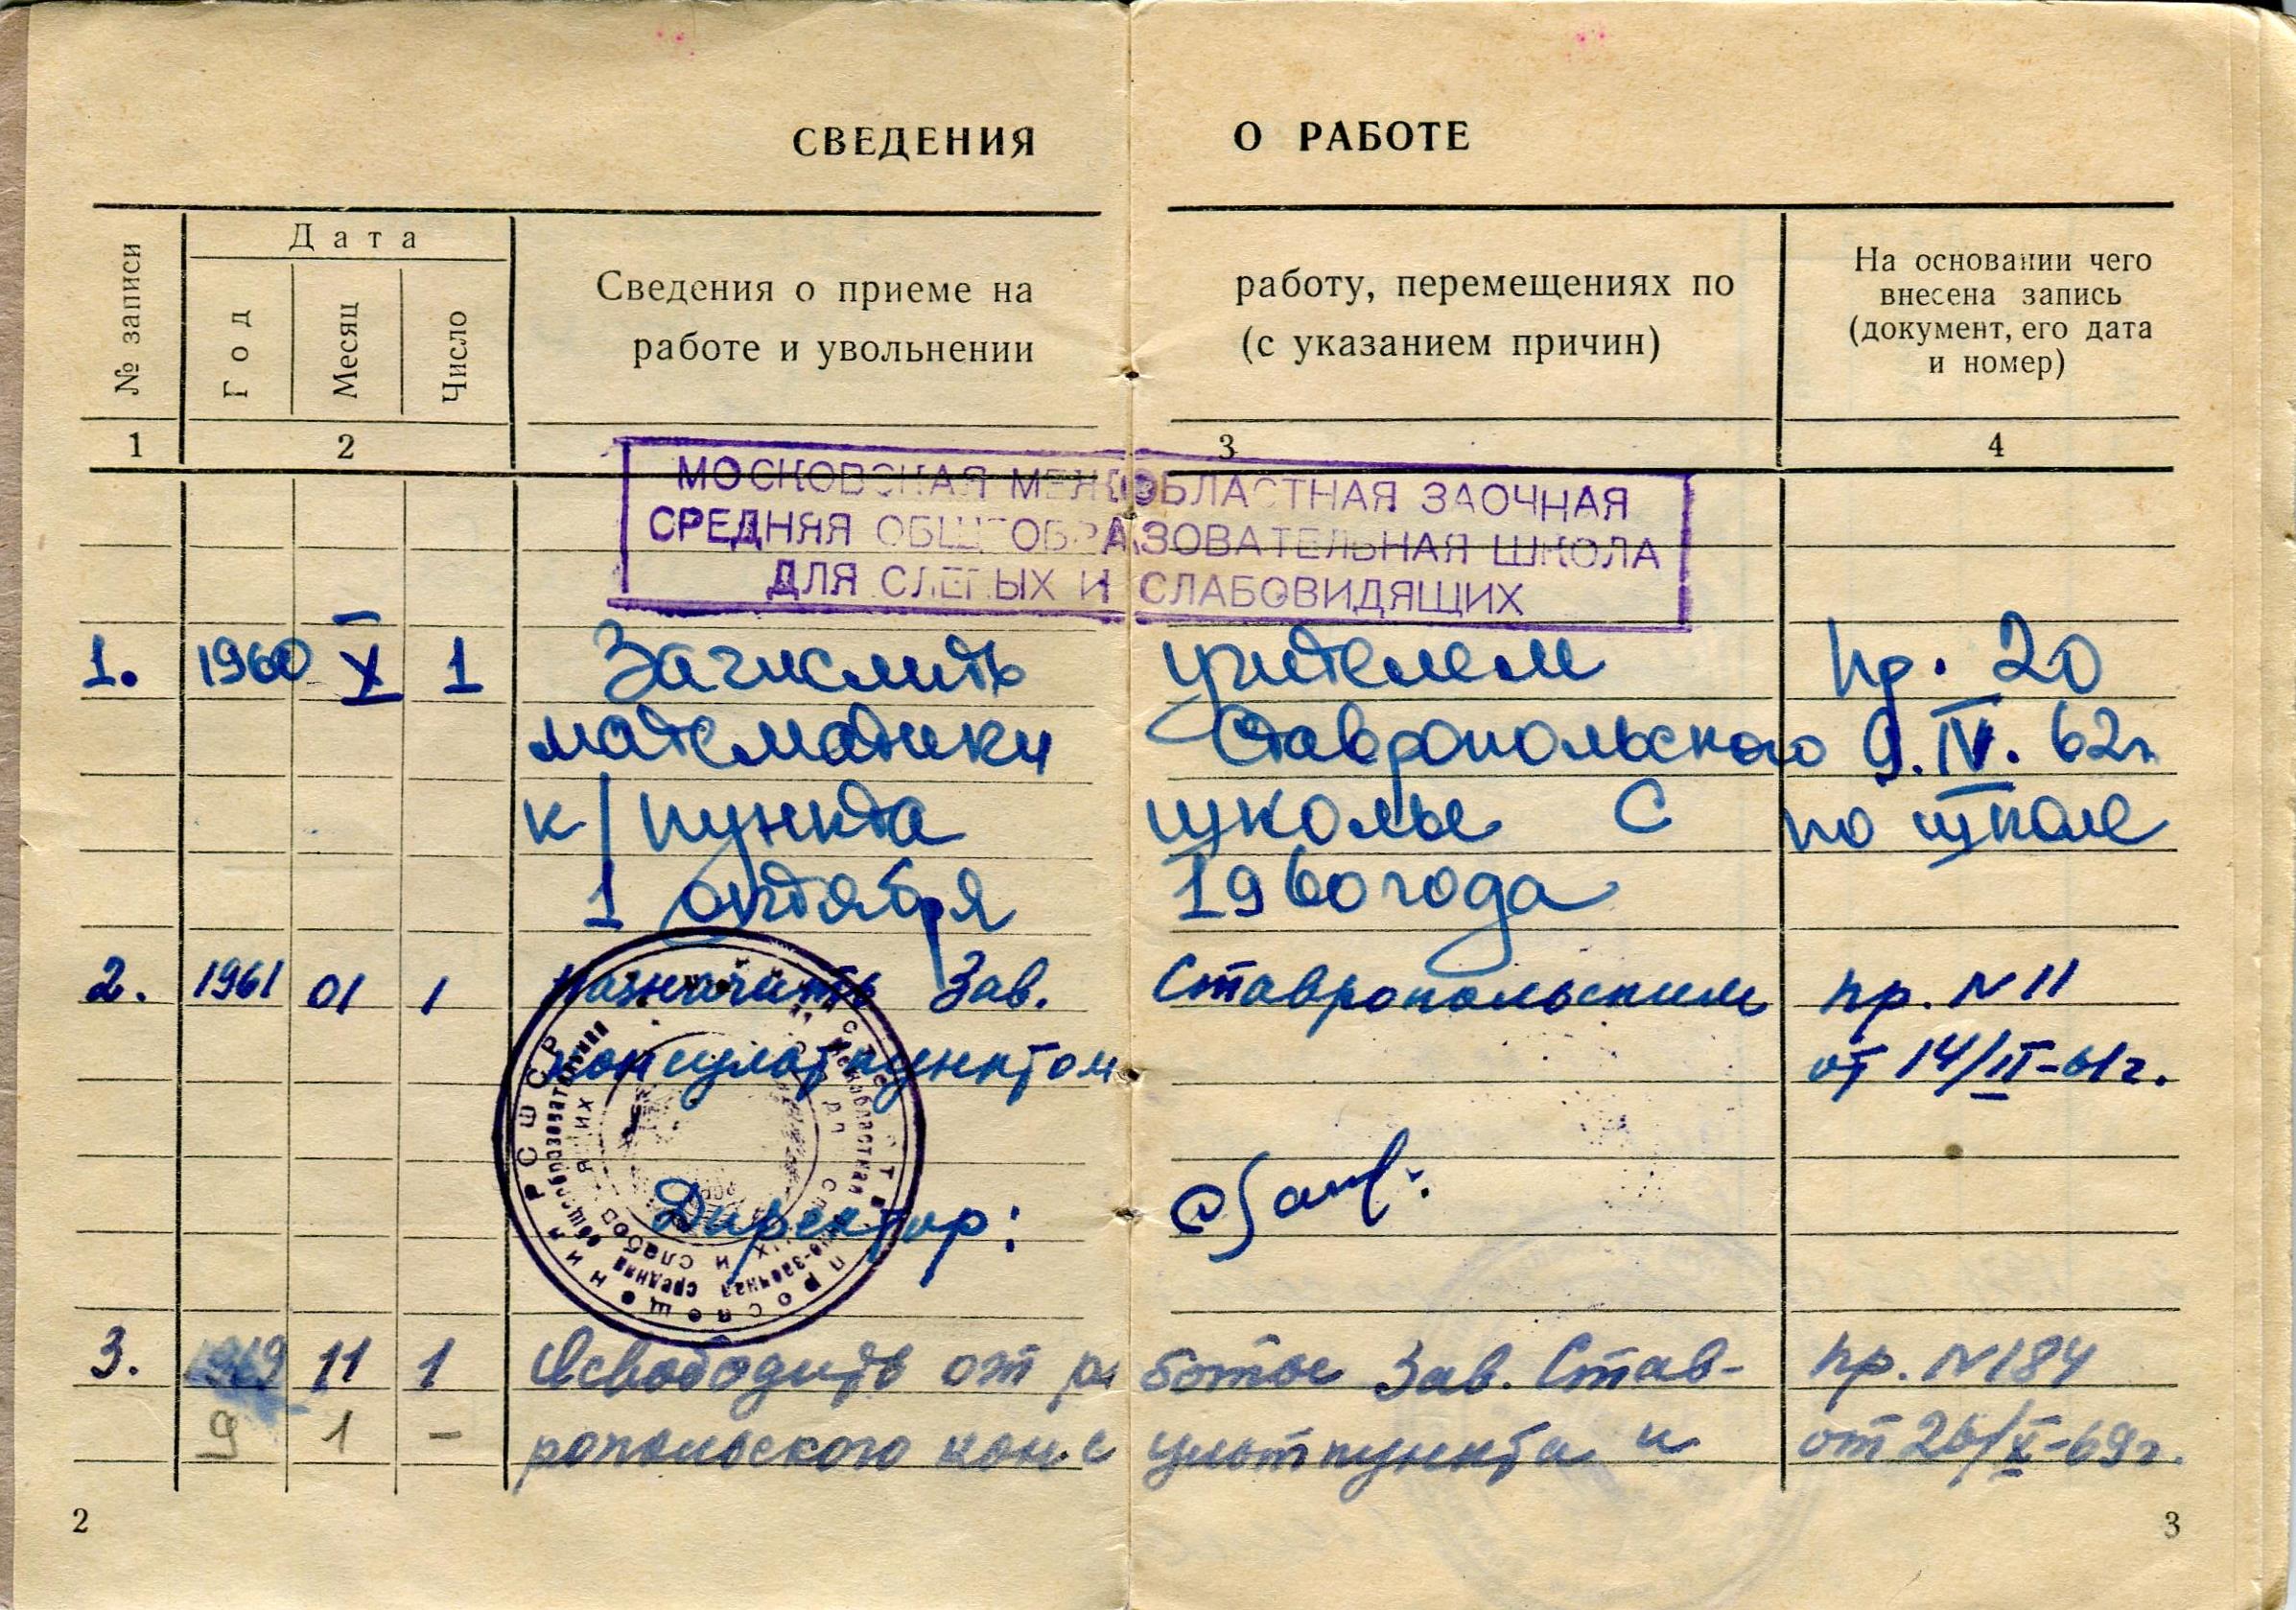 СВЕДЕНИЯ О РАБОТЕ
№ записи
Дата
Год
Месяц
Число
Сведения о приеме на работу, перемещениях по
работе и увольнении (с указанием причин)
На основании чего
внесена запись
(документ, его дата
и номер)
1 2 3 4
МОСКОВСКАЯ МЕЖОБЛАСТНАЯ ЗАОЧНАЯ
СРЕДНЯЯ ОБЩЕОБРАЗОВАТЕЛЬНАЯ ШКОЛА
ДЛЯ СЛЕПЫХ И СЛАБОВИДЯЩИХ
1. 1960 X 1 Зачислить учителем пр. 20
математики Ставропольского 9.IV.62г
к/пункта школы С по школе
1 октября 1960 года
2. 1961 01 1 Назначить Зав. Ставропольским пр. N 11
консультпунктом от 14/II-61г.
Директор:
3. 1969 11 1 Освободить от работы Зав. Став- пр. N 184
9 1 - ропольского консультпункта и от 26/X-69г.
2 3